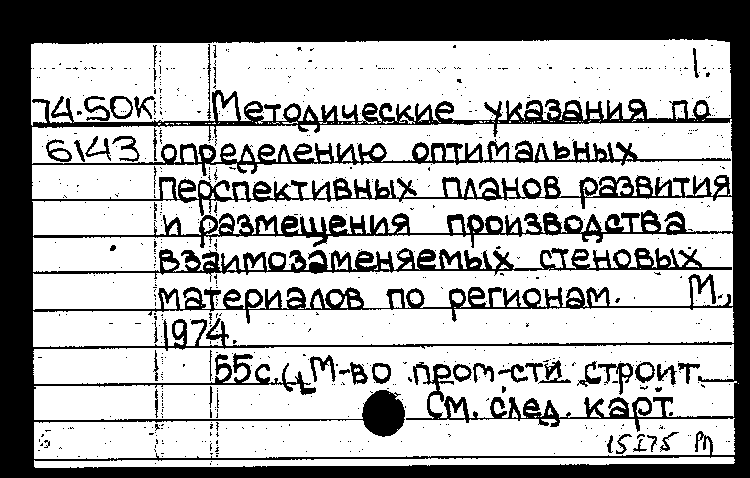 1.
74-50К Методические указания по
6143 определению оптимальных
перспективных планов развития
и размещения производства
взаимозаменяемых стеновых
материалов по регионам. М.,
1974.
55с. (М-во пром-сти строит.
См. след. карт.